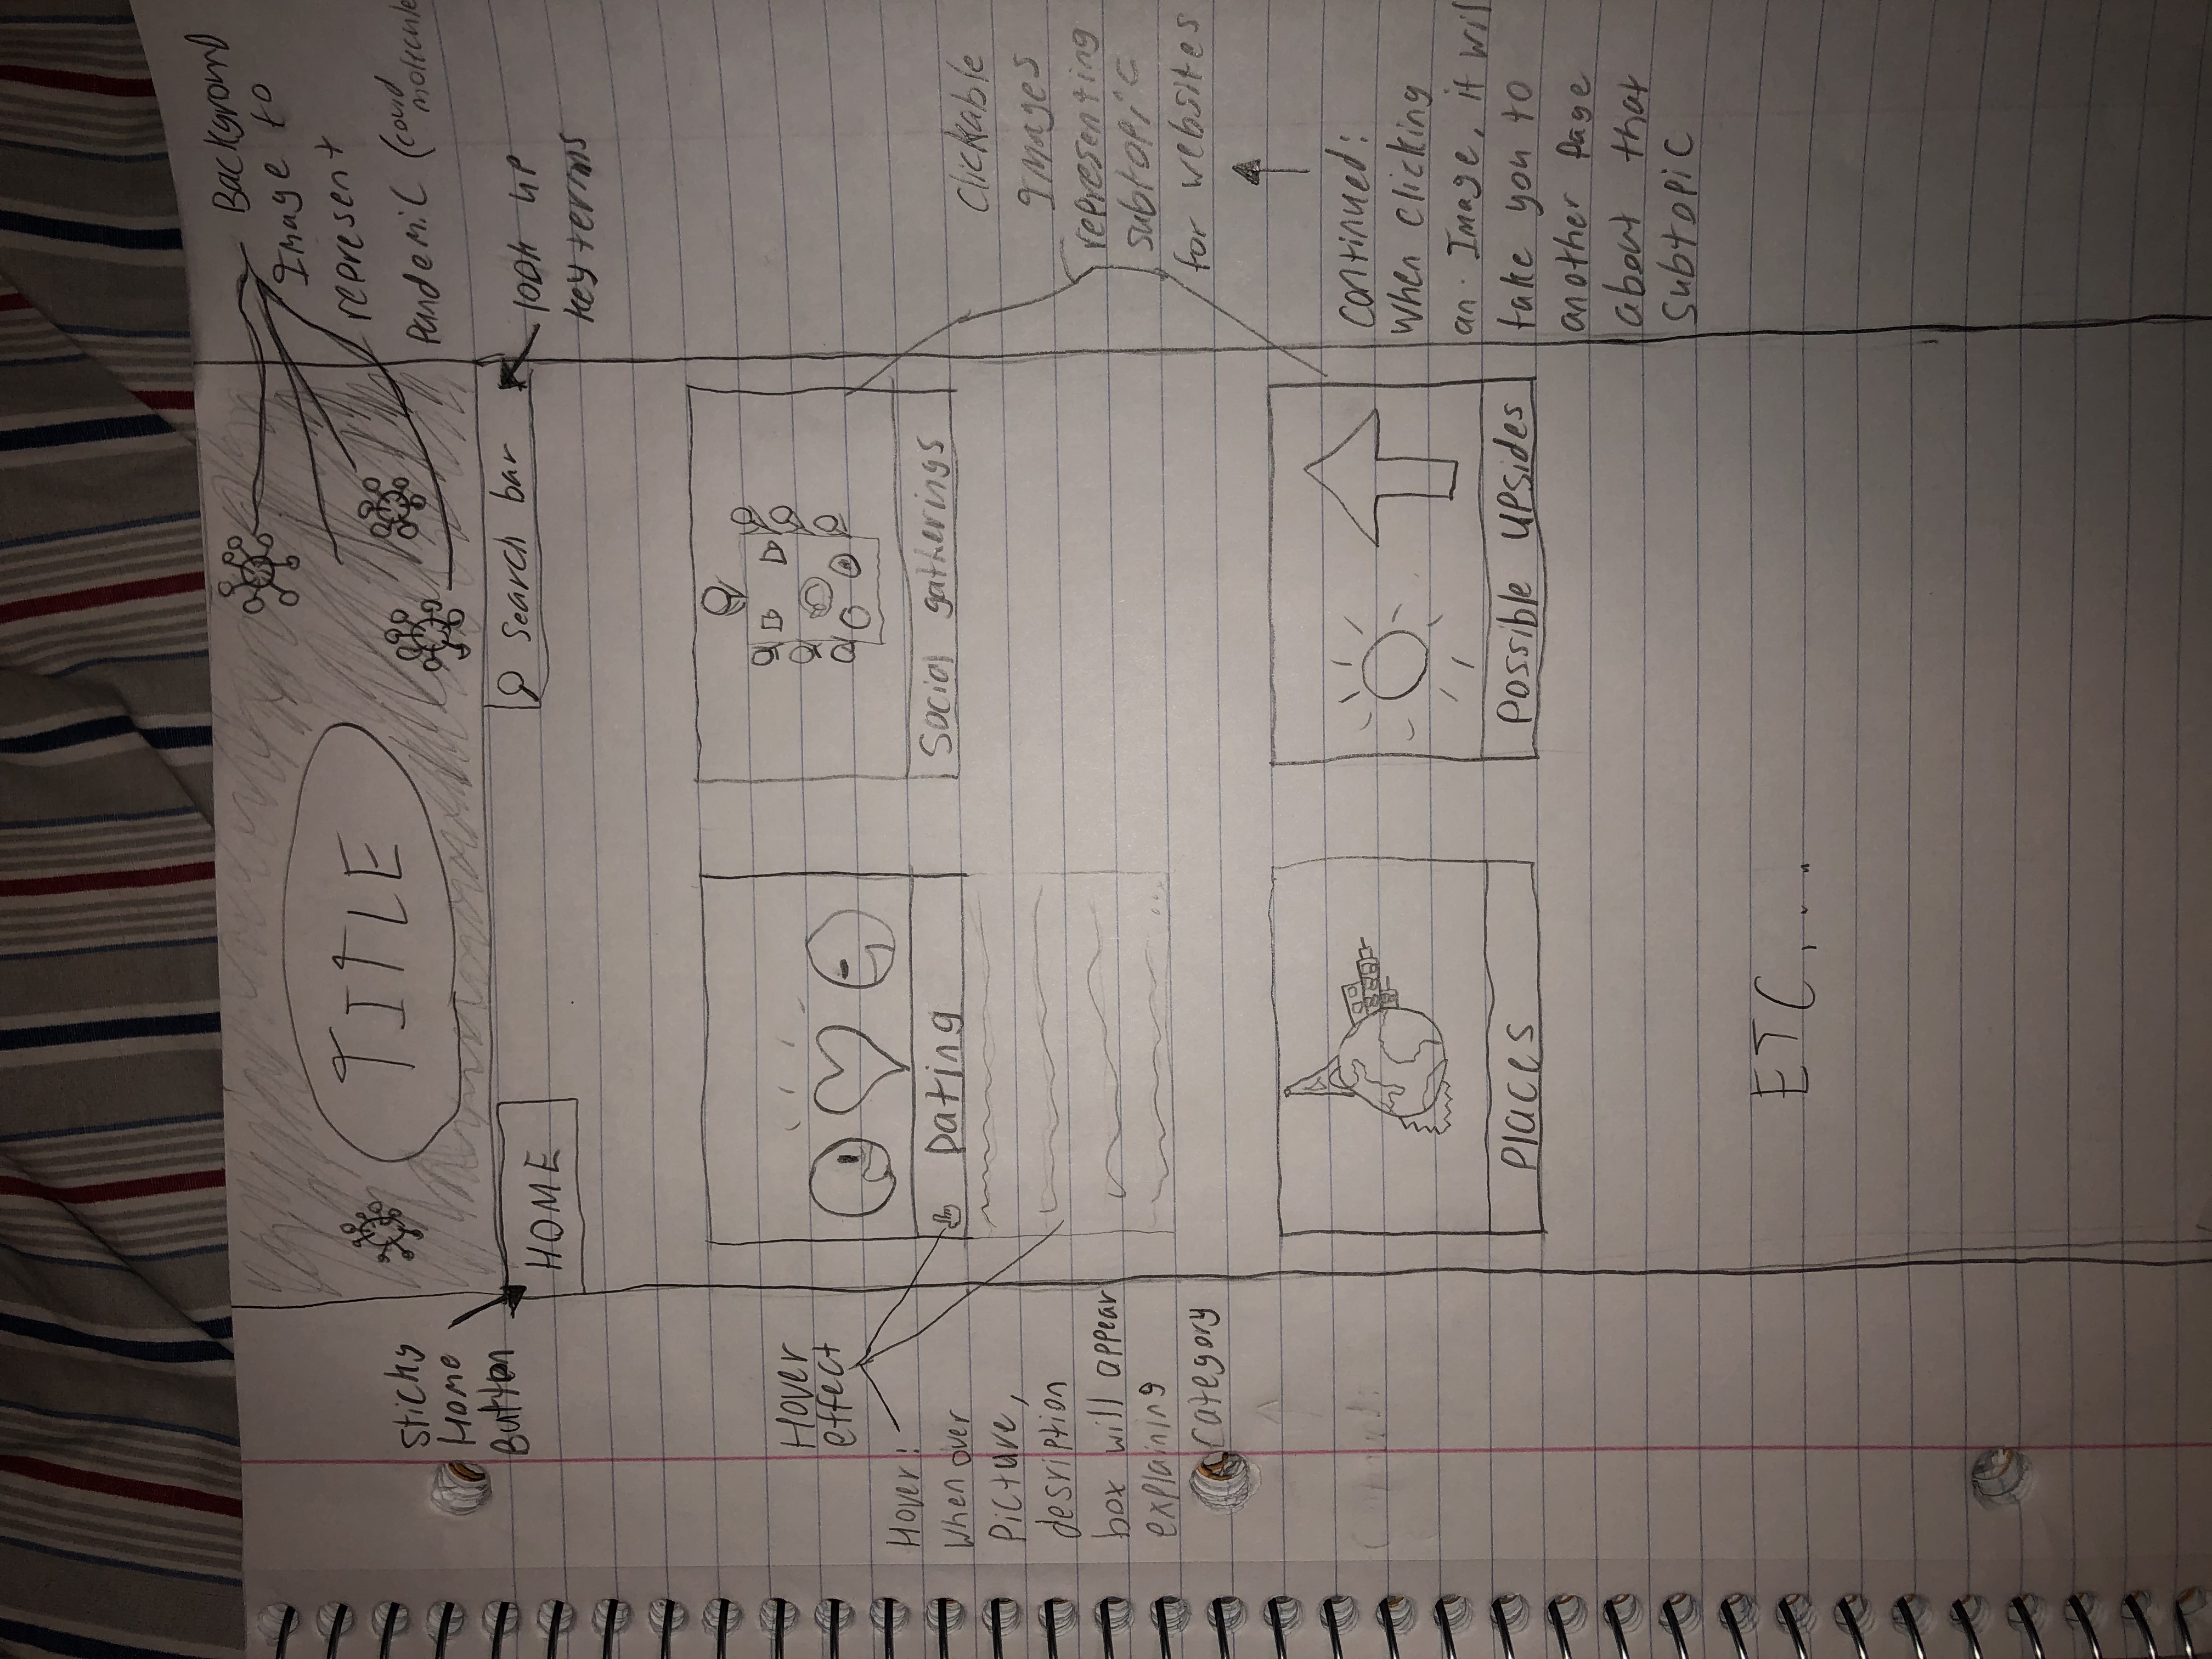 Background
Image to
represent
Pandemic (covid
molecule
TITLE
Sticky
Home
Button
HOME
Search bar
look up
key terms
Hover
effect
Hover:
When over
Picture,
desription
box will appear
explaining
category
Dating
Social gatherings
...
Clickable
Images
representing
subtopic
for websites
Places
Possible upsides
continued:
When clicking
an Image, it wil
take you to
another Page
about that
Subtopic
ETC, ...